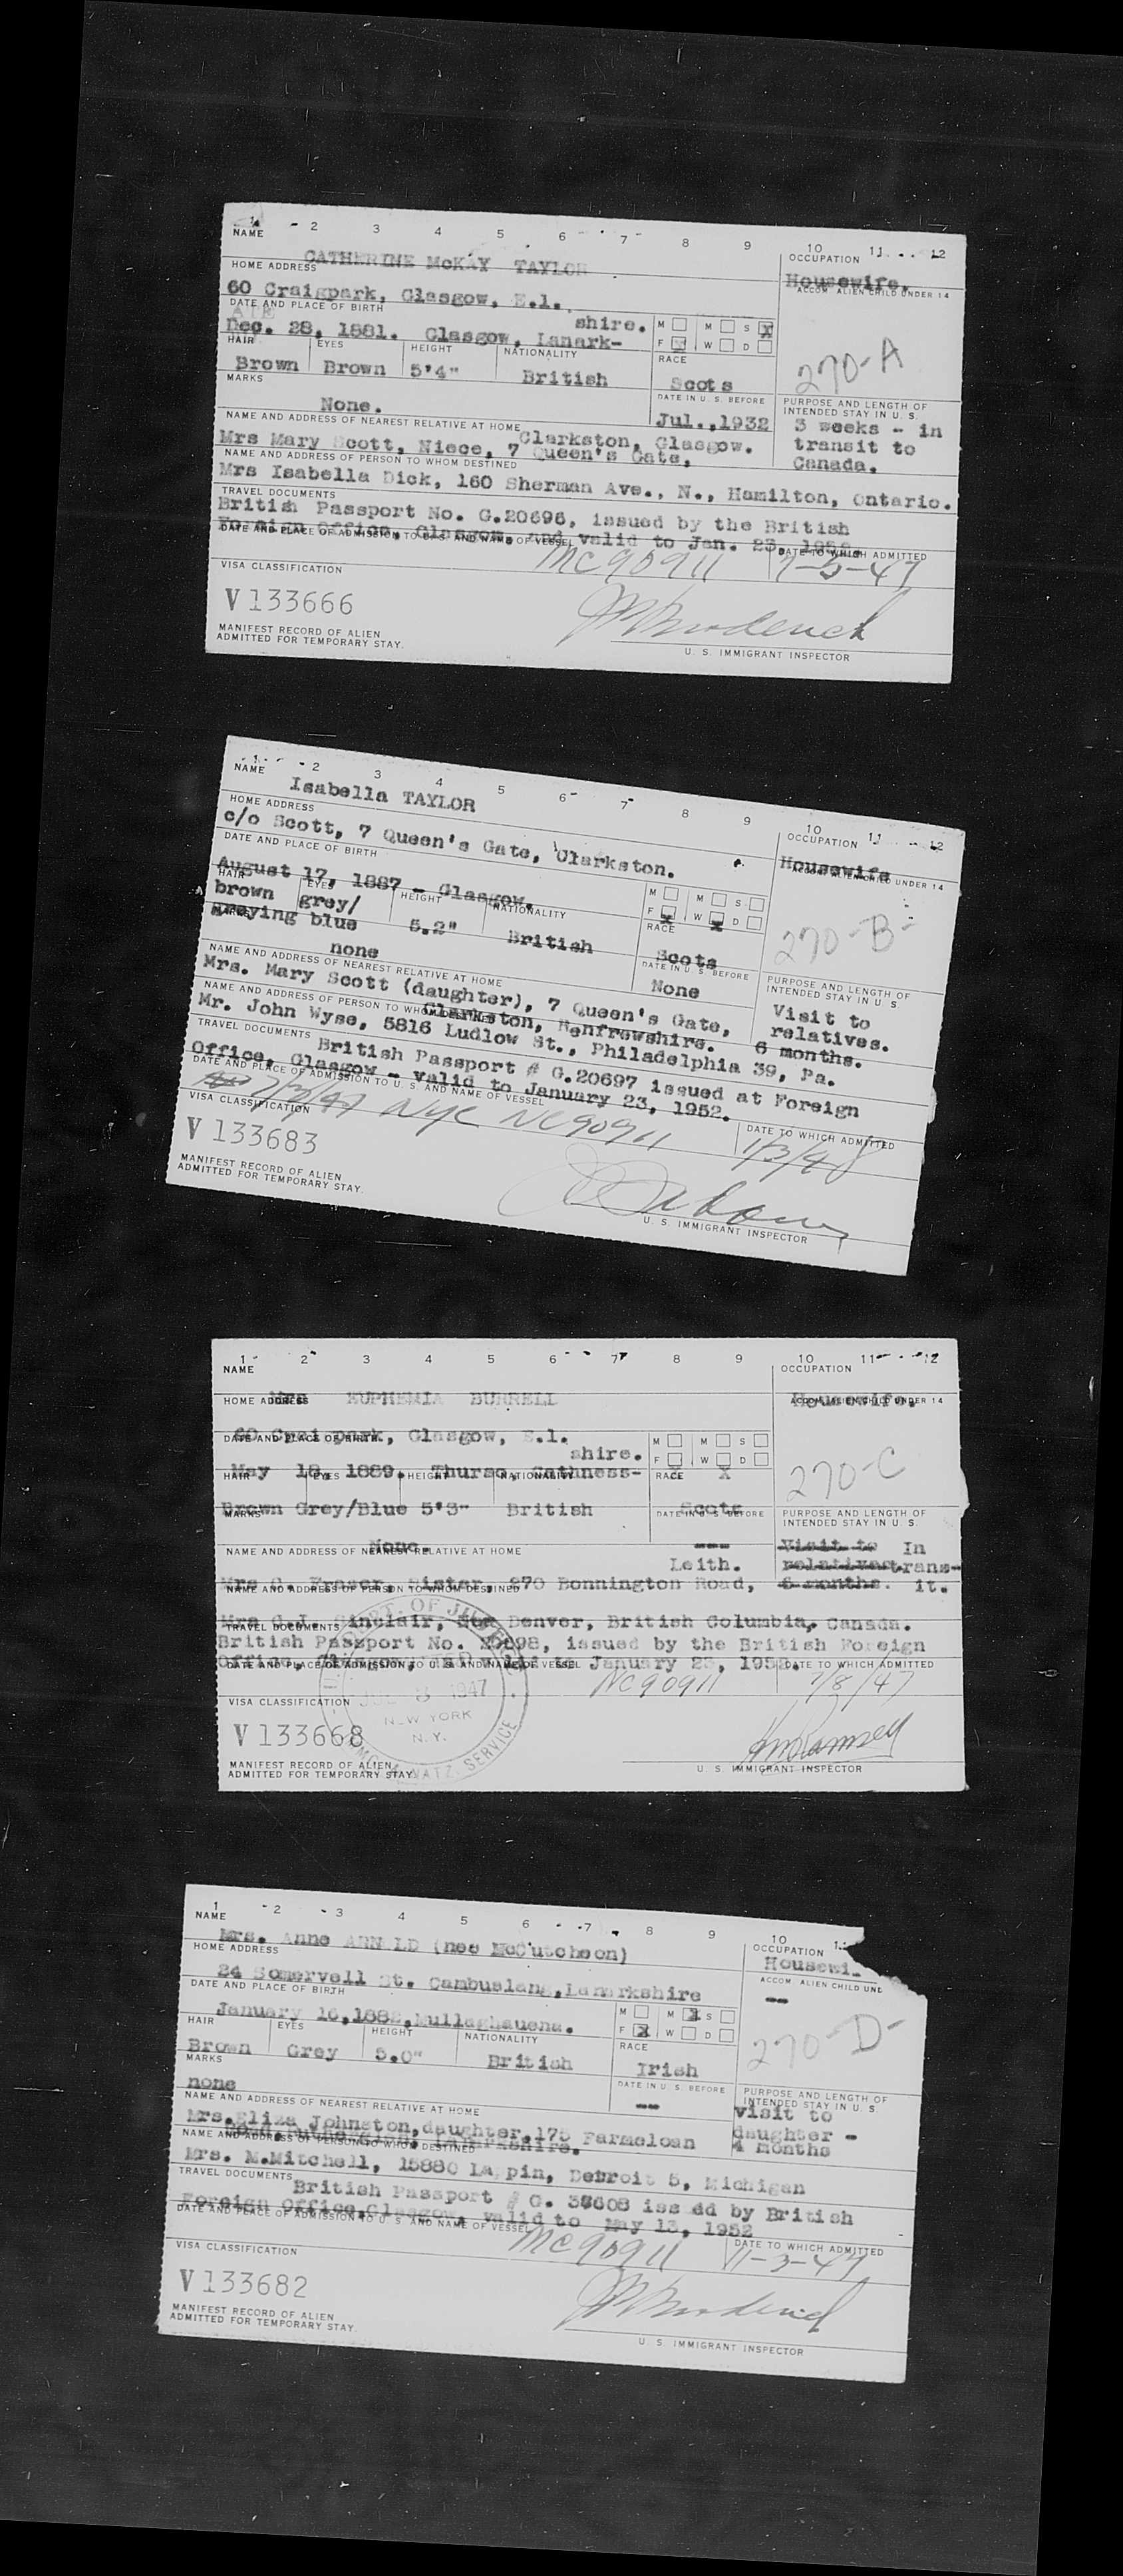 1 2 3 4 5 6 7 8 9 10 11 12
NAME CATHERINE McKAY TAYLOR
OCCUPATION Housewife.
HOME ADDRESS
60 Craigpark, Glasgow, E.1.
ACCOM. ALIEN CHILD UNDER 14
DATE AND PLACE OF BIRTH
shire. M M S X
Dec. 28, 1881. Glasgow, Lanark- F X W D
HAIR EYES HEIGHT NATIONALITY RACE
Brown Brown 5'4" British Scots
270-A
MARKS DATE IN U. S. BEFORE PURPOSE AND LENGTH OF INTENDED STAY IN U. S.
None. Jul.,1932 3 weeks - in transit to Canada.
NAME AND ADDRESS OF NEAREST RELATIVE AT HOME
Clarkston, Glasgow.
Mrs Mary Scott, Niece, 7 Queen's Gate,
NAME AND ADDRESS OF PERSON TO WHOM DESTINED
Mrs Isabella Dick, 160 Sherman Ave., N., Hamilton, Ontario.
TRAVEL DOCUMENTS
British Passport No. G.20696, issued by the British
Foreign Office, Glasgow, and valid to Jan. 23, 1952
DATE AND PLACE OF ADMISSION TO U. S. AND NAME OF VESSEL DATE TO WHICH ADMITTED
NC90911 7-5-47
VISA CLASSIFICATION
V 133666
MANIFEST RECORD OF ALIEN
ADMITTED FOR TEMPORARY STAY.
U. S. IMMIGRANT INSPECTOR
1 2 3 4 5 6 7 8 9 10 11 12
NAME Isabella TAYLOR
OCCUPATION Housewife
HOME ADDRESS
c/o Scott, 7 Queen's Gate, Clarkston.
ACCOM. ALIEN CHILD UNDER 14
DATE AND PLACE OF BIRTH
August 17, 1887 - Glasgow.
M M S
F X W X D
HAIR EYES HEIGHT NATIONALITY RACE
brown greying grey/blue 5.2" British Scots
270-B-
MARKS none
DATE IN U. S. BEFORE None
PURPOSE AND LENGTH OF INTENDED STAY IN U. S.
Visit to relatives. 6 months.
NAME AND ADDRESS OF NEAREST RELATIVE AT HOME
Mrs. Mary Scott (daughter), 7 Queen's Gate,
Clarkston, Renfrewshire.
NAME AND ADDRESS OF PERSON TO WHOM DESTINED
Mr. John Wyse, 5816 Ludlow St., Philadelphia 39, Pa.
TRAVEL DOCUMENTS
British Passport # G.20697 issued at Foreign
Office, Glasgow - valid to January 23, 1952.
DATE AND PLACE OF ADMISSION TO U. S. AND NAME OF VESSEL DATE TO WHICH ADMITTED
7/3/47 NYC NC90911 1/3/48
VISA CLASSIFICATION
V 133683
MANIFEST RECORD OF ALIEN
ADMITTED FOR TEMPORARY STAY.
U. S. IMMIGRANT INSPECTOR
1 2 3 4 5 6 7 8 9 10 11 12
NAME OCCUPATION
Mrs EUPHEMIA BURRELL Housewife.
HOME ADDRESS ACCOM. ALIEN CHILD UNDER 14
60 Craigpark, Glasgow, E.1.
DATE AND PLACE OF BIRTH
shire. M M S
F W D
May 18, 1889. Thurso, Cathness- X X
HAIR EYES HEIGHT NATIONALITY RACE
270-C
Brown Grey/Blue 5'3" British Scots
MARKS DATE IN U. S. BEFORE PURPOSE AND LENGTH OF INTENDED STAY IN U. S.
None. --- Visit to relatives. 6 months. In trans-it.
NAME AND ADDRESS OF NEAREST RELATIVE AT HOME
Leith.
Mrs C. Fraser, Sister, 270 Bonnington Road,
NAME AND ADDRESS OF PERSON TO WHOM DESTINED
Mrs C.J. Sinclair, New Denver, British Columbia, Canada.
TRAVEL DOCUMENTS
British Passport No. 20698, issued by the British Foreign
Office, Glasgow, and valid to January 23, 1952.
DATE AND PLACE OF ADMISSION TO U. S. AND NAME OF VESSEL DATE TO WHICH ADMITTED
NC90911 7/8/47
DEPT. OF JUSTICE
JUL 3 1947
NEW YORK
N. Y.
VISA CLASSIFICATION
V 133668
MANIFEST RECORD OF ALIEN
ADMITTED FOR TEMPORARY STAY.
U. S. IMMIGRANT INSPECTOR
1 2 3 4 5 6 7 8 9 10
NAME OCCUPATION
Mrs. Anne ARNOLD (nee McCutcheon) Housewi
HOME ADDRESS ACCOM. ALIEN CHILD UND
24 Somervell St. Cambuslang,Lanarkshire --
DATE AND PLACE OF BIRTH
M M X S
January 16,1882,Mullaghauena. F X W D
HAIR EYES HEIGHT NATIONALITY RACE
Brown Grey 5.0" British Irish
270-D-
MARKS DATE IN U. S. BEFORE PURPOSE AND LENGTH OF INTENDED STAY IN U. S.
none -- visit to daughter - 4 months
NAME AND ADDRESS OF NEAREST RELATIVE AT HOME
Mrs.Eliza Johnston,daughter,175 Farmeloan
Road, Rutherglen, Lanarkshire.
NAME AND ADDRESS OF PERSON TO WHOM DESTINED
Mrs. M.Mitchell, 15880 Lappin, Detroit 5, Michigan
TRAVEL DOCUMENTS
British Passport # G. 38608 issued by British
Foreign Office,Glasgow, valid to May 13, 1952
DATE AND PLACE OF ADMISSION TO U. S. AND NAME OF VESSEL DATE TO WHICH ADMITTED
NC90911 11-3-47
VISA CLASSIFICATION
V 133682
MANIFEST RECORD OF ALIEN
ADMITTED FOR TEMPORARY STAY.
U. S. IMMIGRANT INSPECTOR